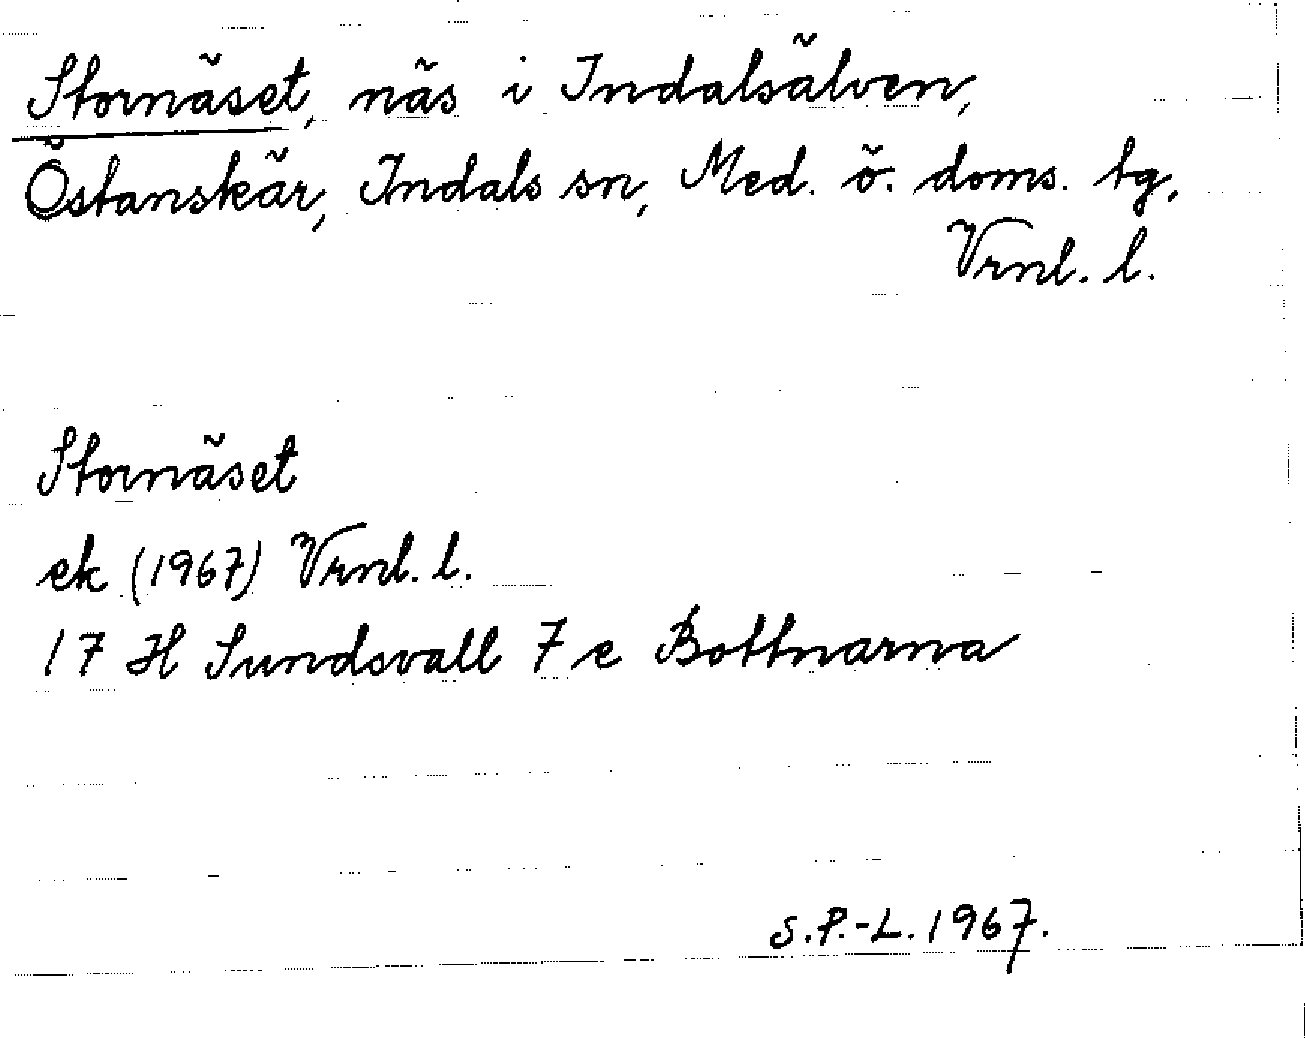 Stornäset, näs i Indalsälven,
Östanskär, Indals sn, Med. ö. doms. tg.
Vrnl. l.
Stornäset
ek (1967) Vrnl. l.
17 H Sundsvall 7 e Bottnarna
S.P.-L. 1967.